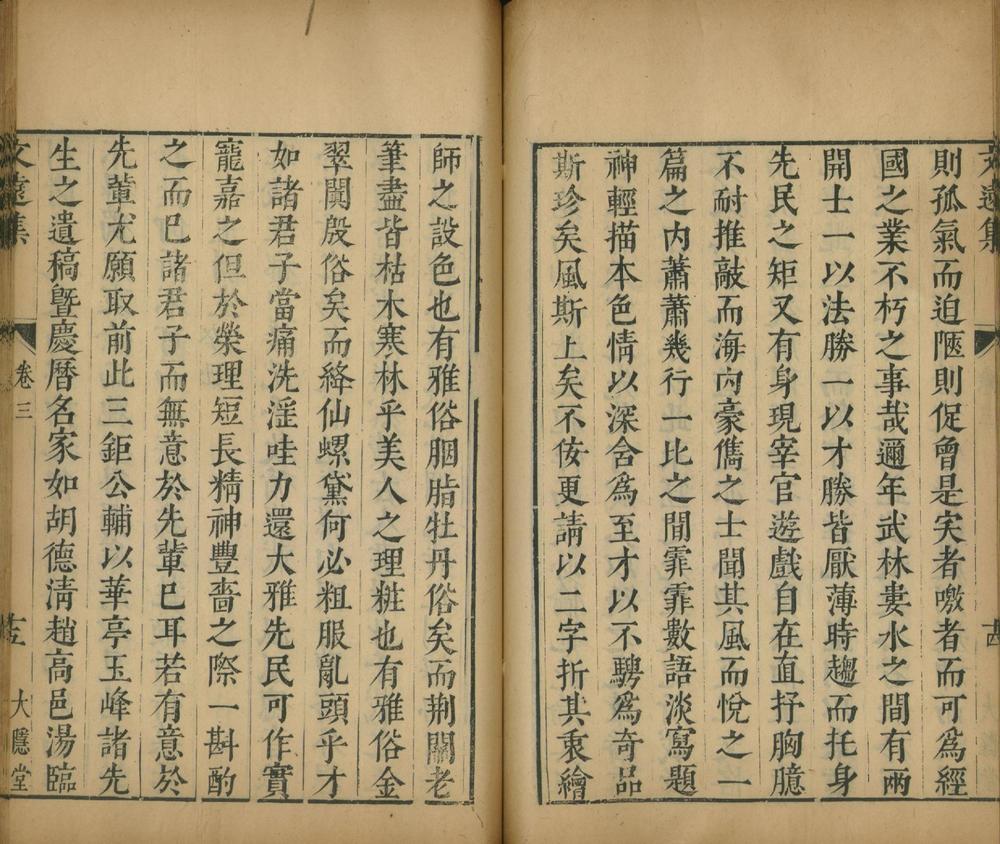 文遠集
則孤氣而迫陿則促會是突者噭者而可為經
國之業不朽之事哉邇年武林婁水之間有兩
開士一以法勝一以才勝皆厭薄時趨而托身
先民之矩又有身現宰官遊戲自在直抒胸臆
不耐推敲而海內豪儁之士聞其風而悅之一
篇之內蕭蕭幾行一比之間霏霏數語淡寫題
神輕描本色情以深舍為至才以不騁為奇品
斯珍矣風斯上矣不佞更請以二字折其衷繪
師之設色也有雅俗胭脂牡丹俗矣而荆關老
筆盡皆枯木寒林乎美人之理粧也有雅俗金
翠闐殷俗矣而絳仙螺黛何必粗服亂頭乎才
如諸君子當痛洗淫哇力還大雅先民可作實
寵嘉之但於榮理短長精神豐嗇之際一斟酌
之而已諸君子而無意於先輩已耳若有意於
先輩尤願取前此三鉅公輔以華亭玉峰諸先
生之遺稿暨慶曆名家如胡德清趙高邑湯臨
文遠集
卷三
大隱堂